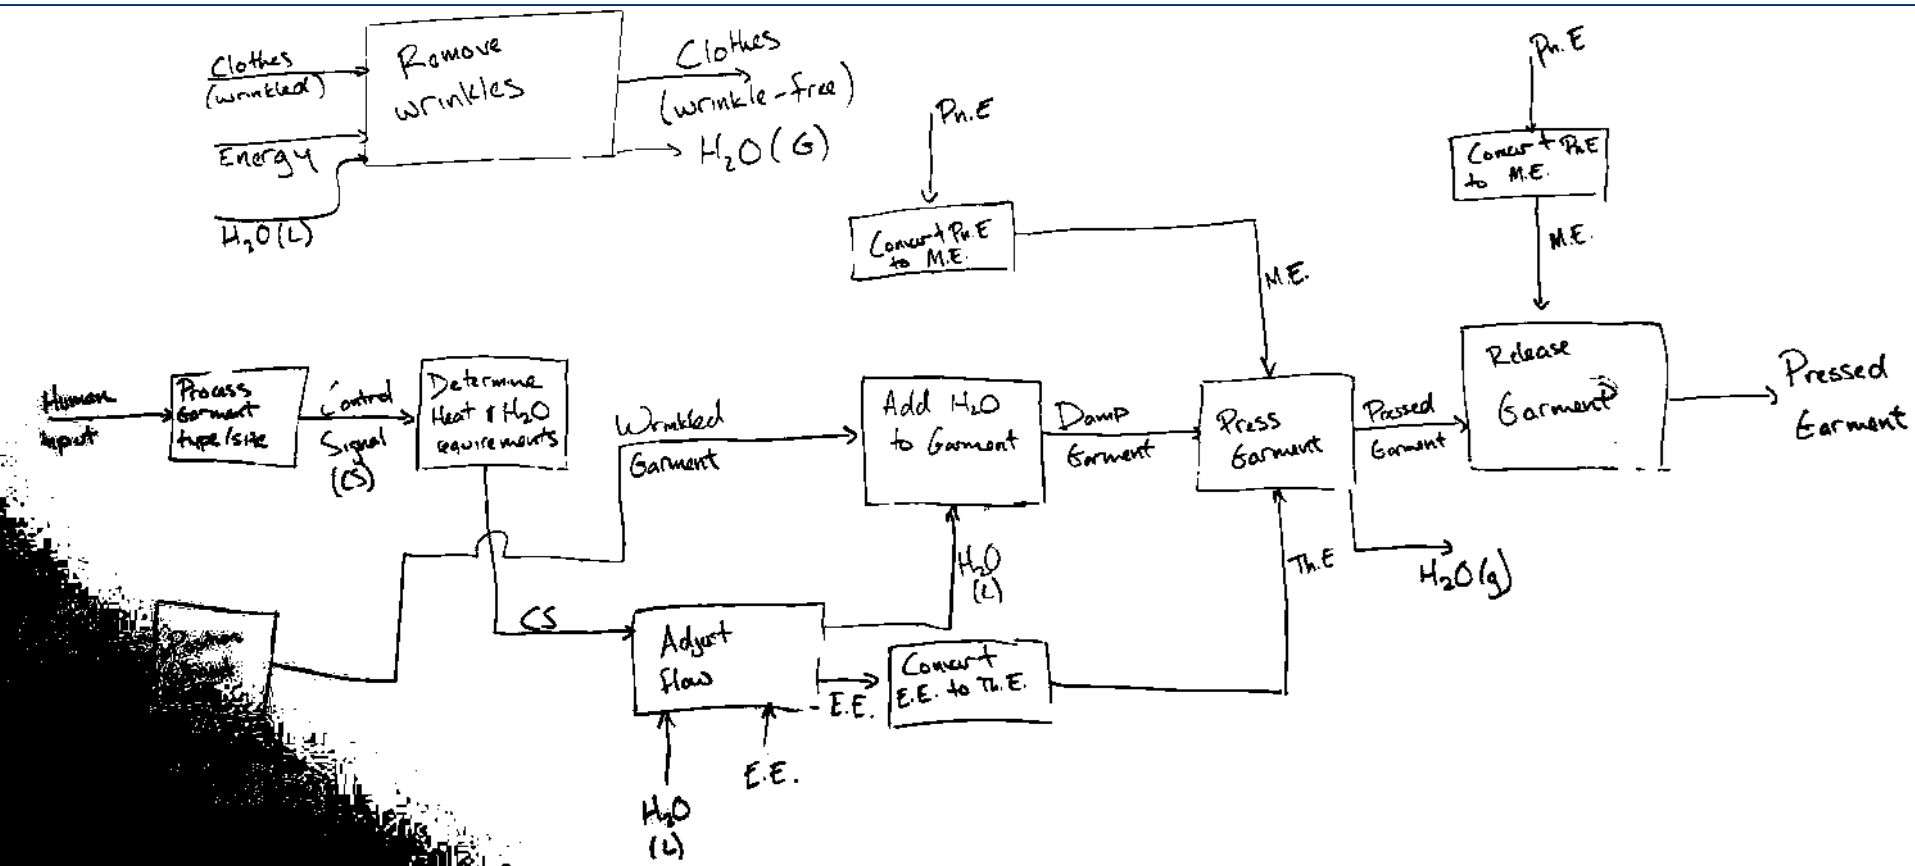 Clothes
(wrinkled)
Energy
H2O(L)
Remove
wrinkles
Clothes
(wrinkle-free)
H2O(G)
Pn.E
Convert Pn.E
to M.E.
M.E.
Pn.E
Convert Pn.E
to M.E.
M.E.
Human
input
Process
Garment
type/size
Control
Signal
(CS)
Determine
Heat & H2O
requirements
Wrinkled
Garment
Add H2O
to Garment
Damp
Garment
Press
Garment
Pressed
Garment
Release
Garment
Pressed
Garment
H2O
(L)
Th.E
H2O(g)
CS
Adjust
flow
E.E.
Convert
E.E. to Th.E.
E.E.
H2O
(L)